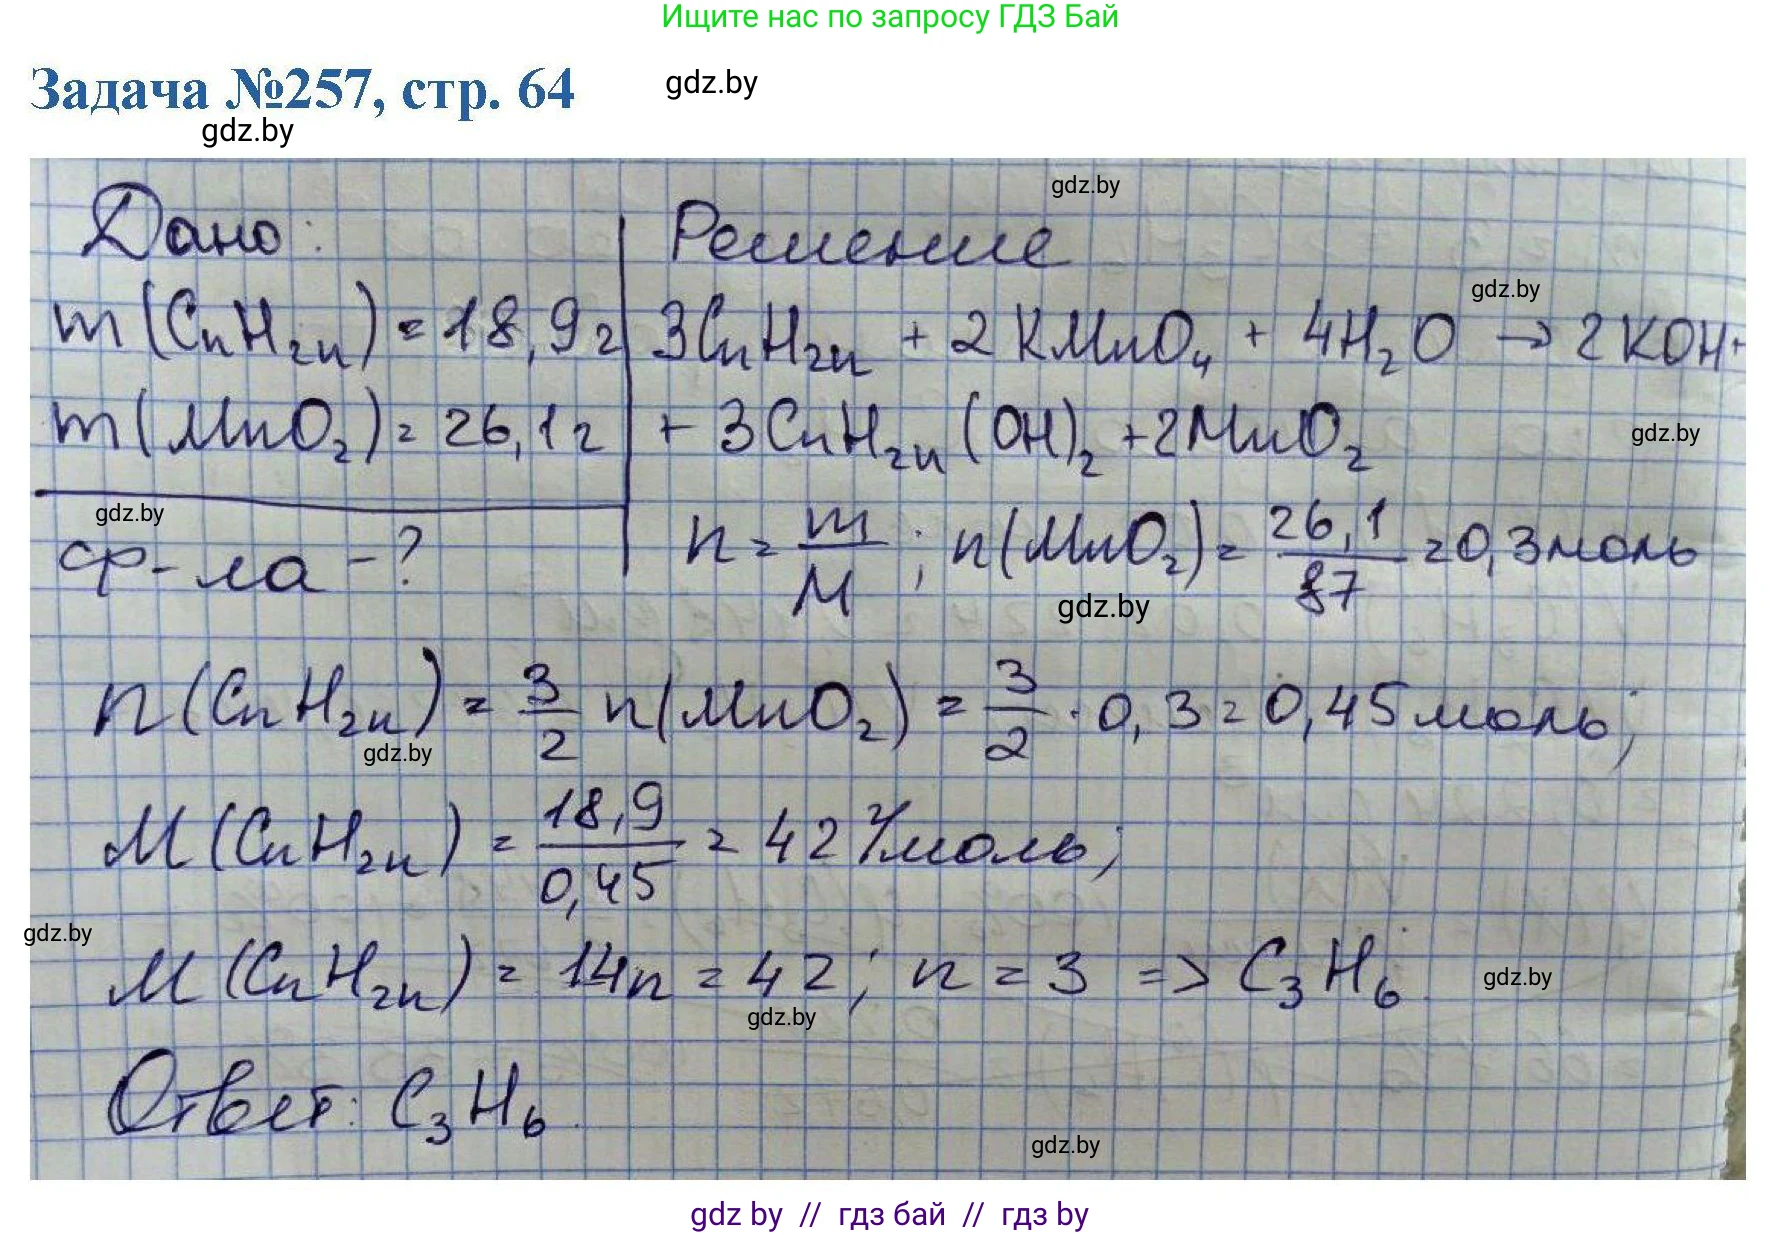 Ищите нас по запросу ГДЗ Бай
Задача №257, стр. 64
gdz.by
gdz.by
gdz.by
Дано: Решение
gdz.by
m(CnH2n) = 18,9г 3CnH2n + 2KMnO4 + 4H2O → 2KOH+
m(MnO2) = 26,1г + 3CnH2n(OH)2 + 2MnO2
gdz.by
gdz.by
ф-ла - ? n = m/M ; n(MnO2) = 26,1/87 = 0,3моль
gdz.by
n(CnH2n) = 3/2 n(MnO2) = 3/2 · 0,3 = 0,45моль;
gdz.by
M(CnH2n) = 18,9/0,45 = 42 г/моль;
gdz.by
M(CnH2n) = 14n = 42; n = 3 => C3H6.
gdz.by
gdz.by
Ответ: C3H6.
gdz.by
gdz by // гдз бай // гдз by